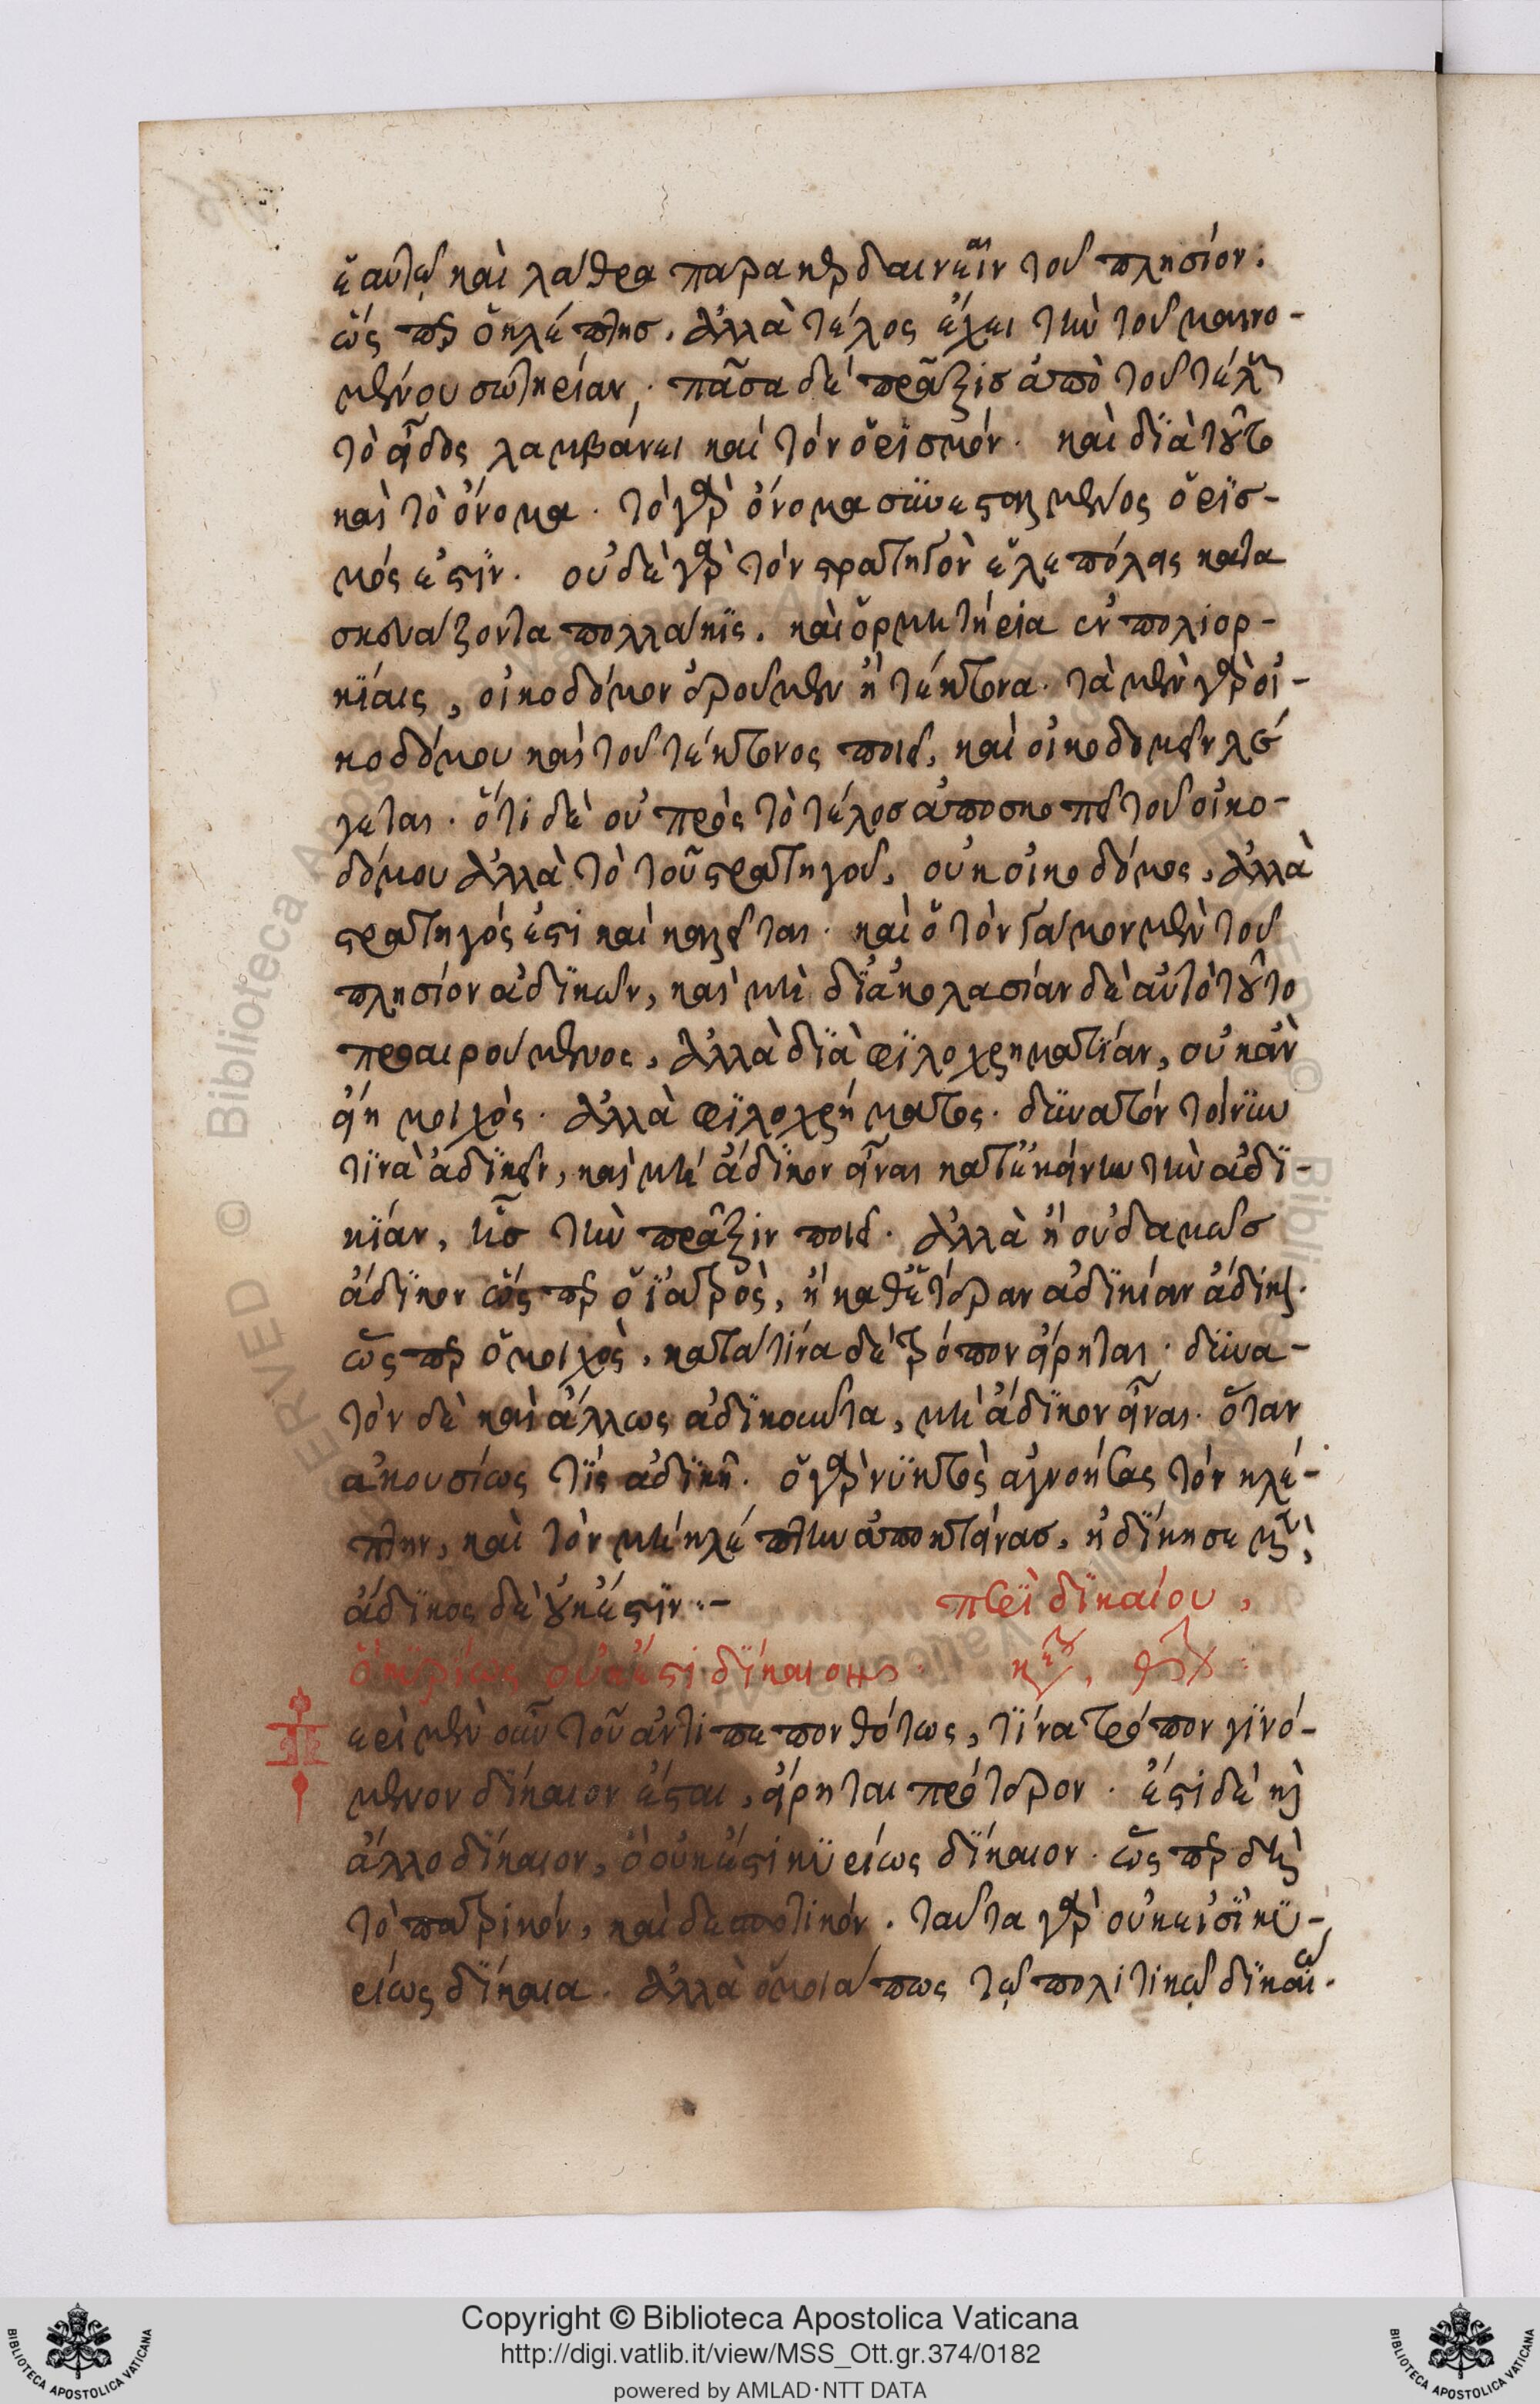 ἑαυτῷ καὶ λάθρα παρακερδαίνειν τοῦ πλησίον.
ὥσπερ ὁ κλέπτης, ἀλλὰ τέλος ἔχει τὴν τοῦ καμνο-
μένου σωτηρίαν, πᾶσα δὲ πρᾶξις ἀπὸ τοῦ τέλους
τὸ εἶδος λαμβάνει καὶ τὸν ὁρισμόν. καὶ διὰ τοῦτο
καὶ τὸ ὄνομα. τὸ γὰρ ὄνομα συνεσταλμένος ὁρισ-
μός ἐστιν. οὐδὲ γὰρ τὸν στρατηγὸν ἑλεπόλεις κατα
σκευάζοντα πολλάκις, καὶ ὁρμητήρια ἐν πολιορ-
κίαις, οἰκοδόμον ἐροῦμεν ἢ τέκτονα. τὰ μὲν γὰρ οἰ-
κοδόμου καὶ τοῦ τέκτονος ποιεῖ, καὶ οἰκοδομεῖν λέ
γεται. ὅτι δὲ οὐ πρὸς τὸ τέλος ἀποσκοπεῖ τοῦ οἰκο-
δόμου ἀλλὰ τὸ τοῦ στρατηγοῦ, οὐκ οἰκοδόμος, ἀλλὰ
στρατηγός ἐστι καὶ καλεῖται. καὶ ὁ τὸν γάμον μὲν τοῦ
πλησίον ἀδικῶν, καὶ μὴ δι' ἀκολασίαν δὲ αὐτὸ τοῦτο
προαιρούμενος, ἀλλὰ διὰ φιλοχρηματίαν, οὐκ ἂν
εἴη μοιχὸς. ἀλλὰ φιλοχρήματος. δυνατόν τοίνυν
τινὰ ἀδικεῖν, καὶ μὴ ἄδικον εἶναι κατ' ἐκείνην τὴν ἀδι-
κίαν, ἧς τὴν πρᾶξιν ποιεῖ. ἀλλὰ ἢ οὐδαμῶς
ἄδικον ὥσπερ ὁ ἰατρὸς, ἢ καθ' ἑτέραν ἀδικίαν ἄδικον.
ὥσπερ ὁ μοιχὸς, κατὰ τίνα δὲ τρόπον εἴρηται. δυνα-
τὸν δὲ καὶ ἄλλως ἀδικοῦντα, μὴ ἄδικον εἶναι. ὅταν
ἀκουσίως τις ἀδικῇ. ὁ γὰρ νυκτὸς ἀγνοήσας τὸν κλέ-
πτην, καὶ τὸν μὴ κλέπτην ἀποκτείνας, ἠδίκησε μὲν,
ἄδικος δὲ οὐκ ἔστιν:-
περὶ δικαίου,
ὃ κυρίως οὐκ ἔστι δίκαιον
ερὶ μὲν οὖν τοῦ ἀντιπεπονθότως, τίνα τρόπον γινό-
μενον δίκαιον ἔσται, εἴρηται πρότερον. ἔστι δὲ καὶ
ἄλλο δίκαιον, ὃ οὐκ ἔστι κυρίως δίκαιον. ὥσπερ δὴ
τὸ πατρικόν, καὶ δεσποτικόν. ταῦτα γὰρ οὐκ εἰσὶ κυ-
ρίως δίκαια. ἀλλὰ ὅμοιά πως τῷ πολιτικῷ δικαίῳ.
Copyright © Biblioteca Apostolica Vaticana
http://digi.vatlib.it/view/MSS_Ott.gr.374/0182
powered by AMLAD·NTT DATA